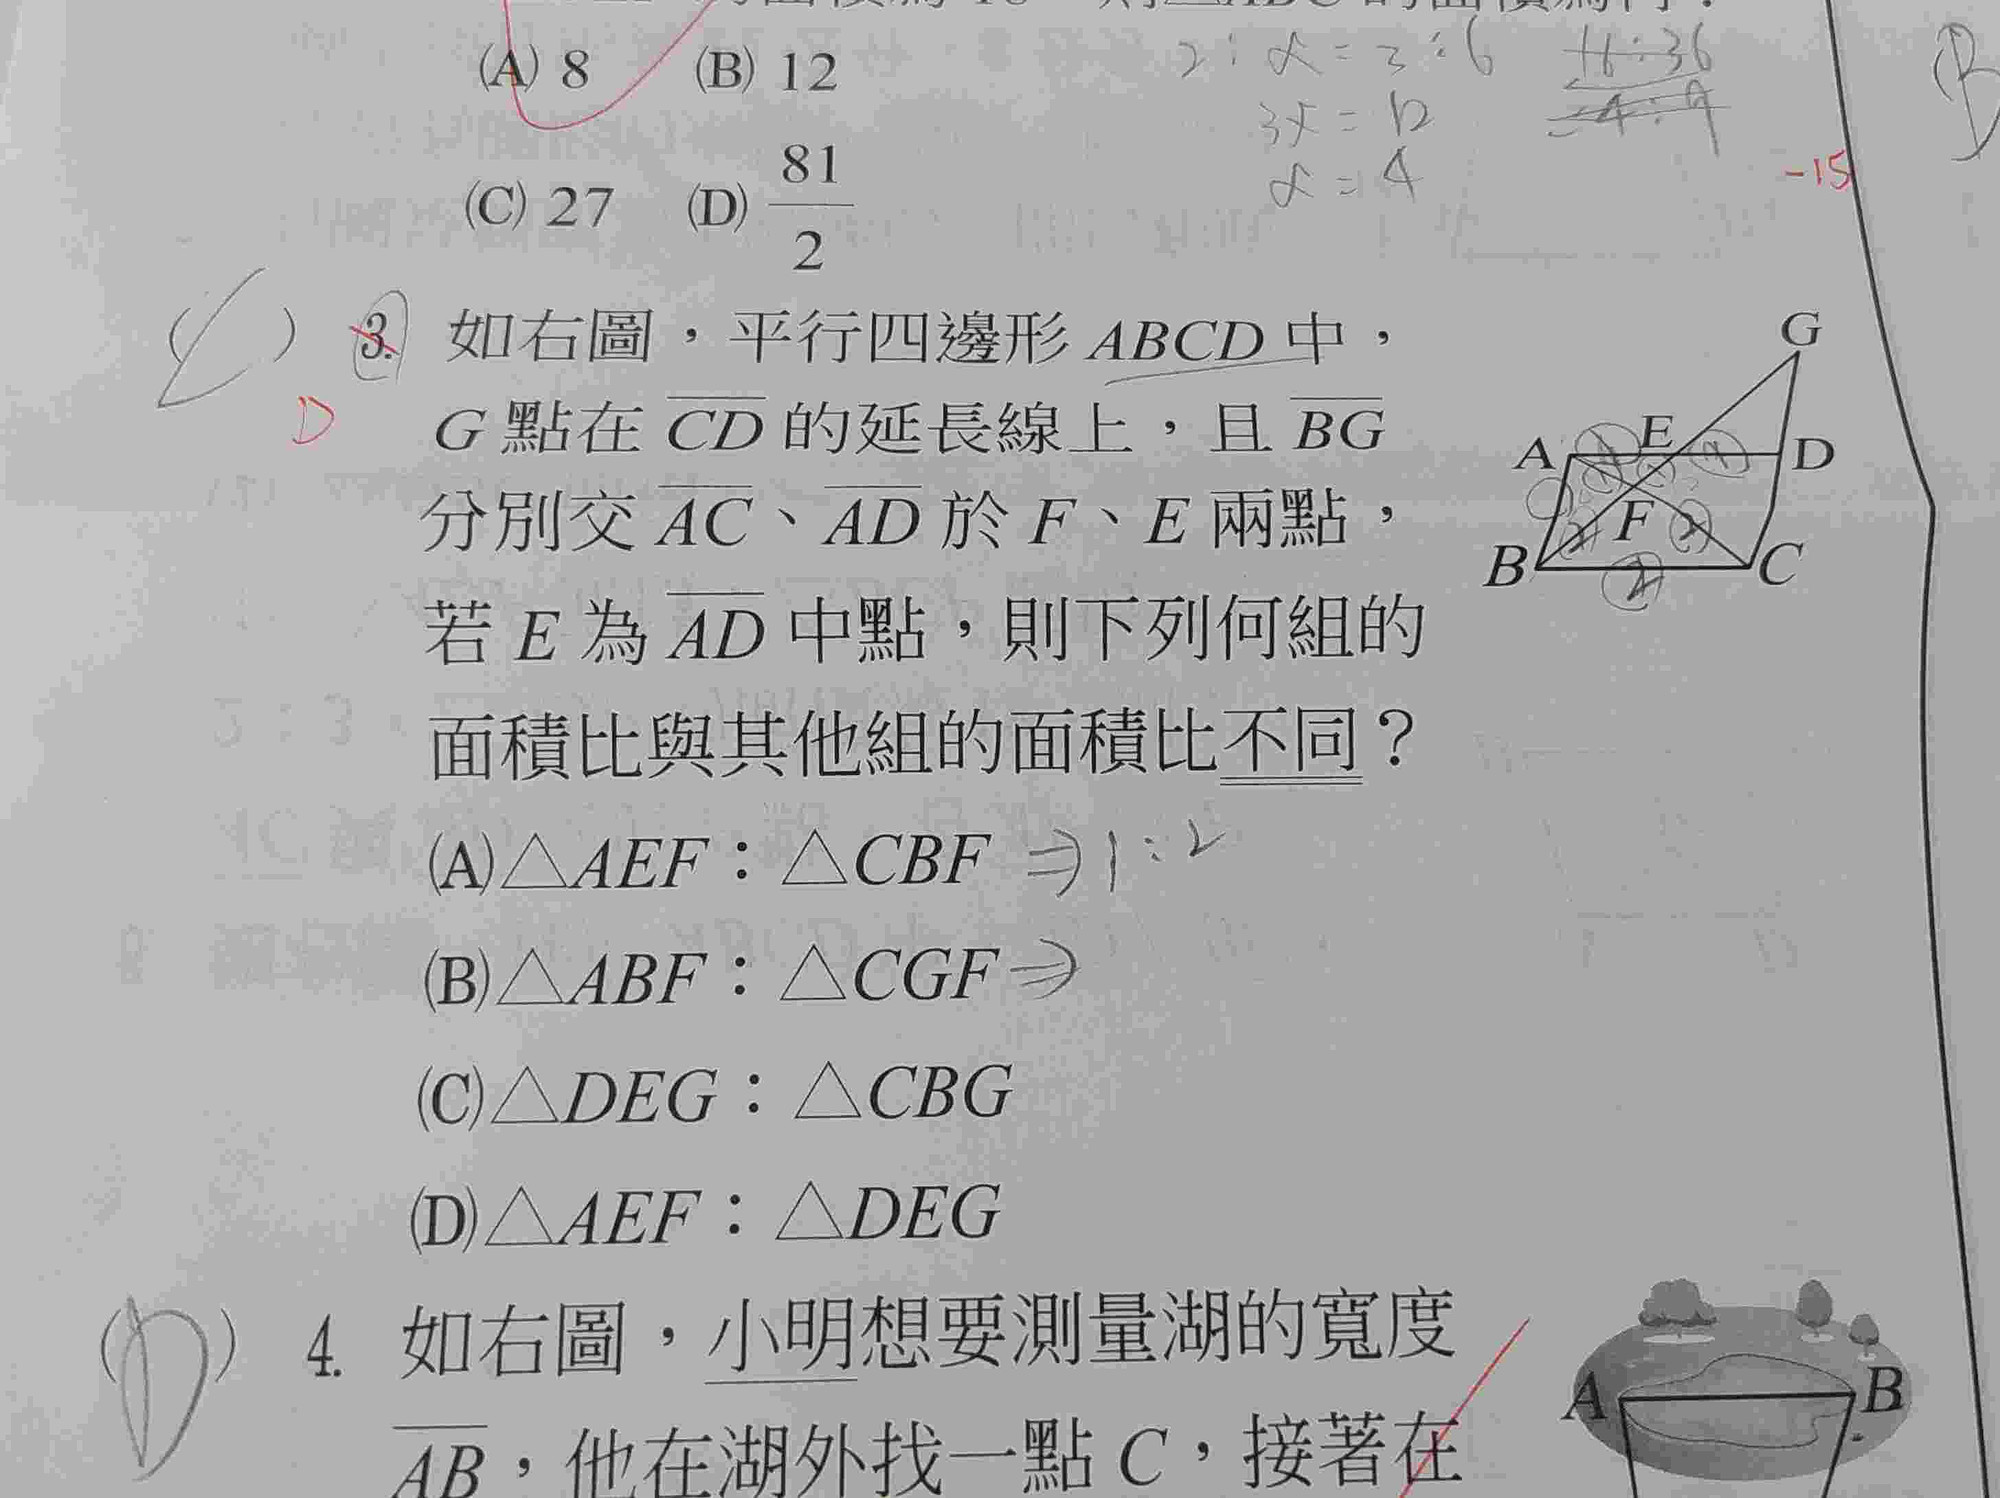 (A) 8 (B) 12
2：x = 3：6
3x = 12
x = 4
16：36
= 4：9
-15
(C) 27 (D) 81/2
( ) 3. 如右圖，平行四邊形 ABCD 中，
D
G 點在 CD 的延長線上，且 BG
分別交 AC、AD 於 F、E 兩點，
若 E 為 AD 中點，則下列何組的
面積比與其他組的面積比不同？
G
A E D
F
B C
(A)△AEF：△CBF ⇒ 1：2
(B)△ABF：△CGF ⇒
(C)△DEG：△CBG
(D)△AEF：△DEG
(D) 4. 如右圖，小明想要測量湖的寬度
AB，他在湖外找一點 C，接著在
A B